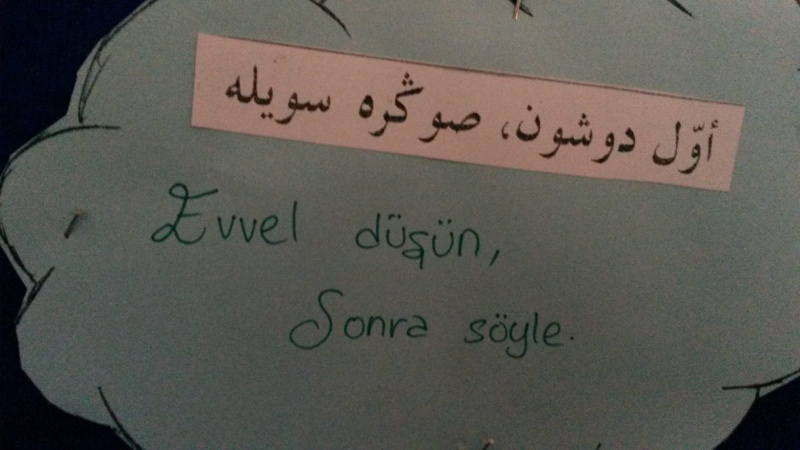 أوّل دوشون، صوڭره سويله
Evvel düşün,
Sonra söyle.